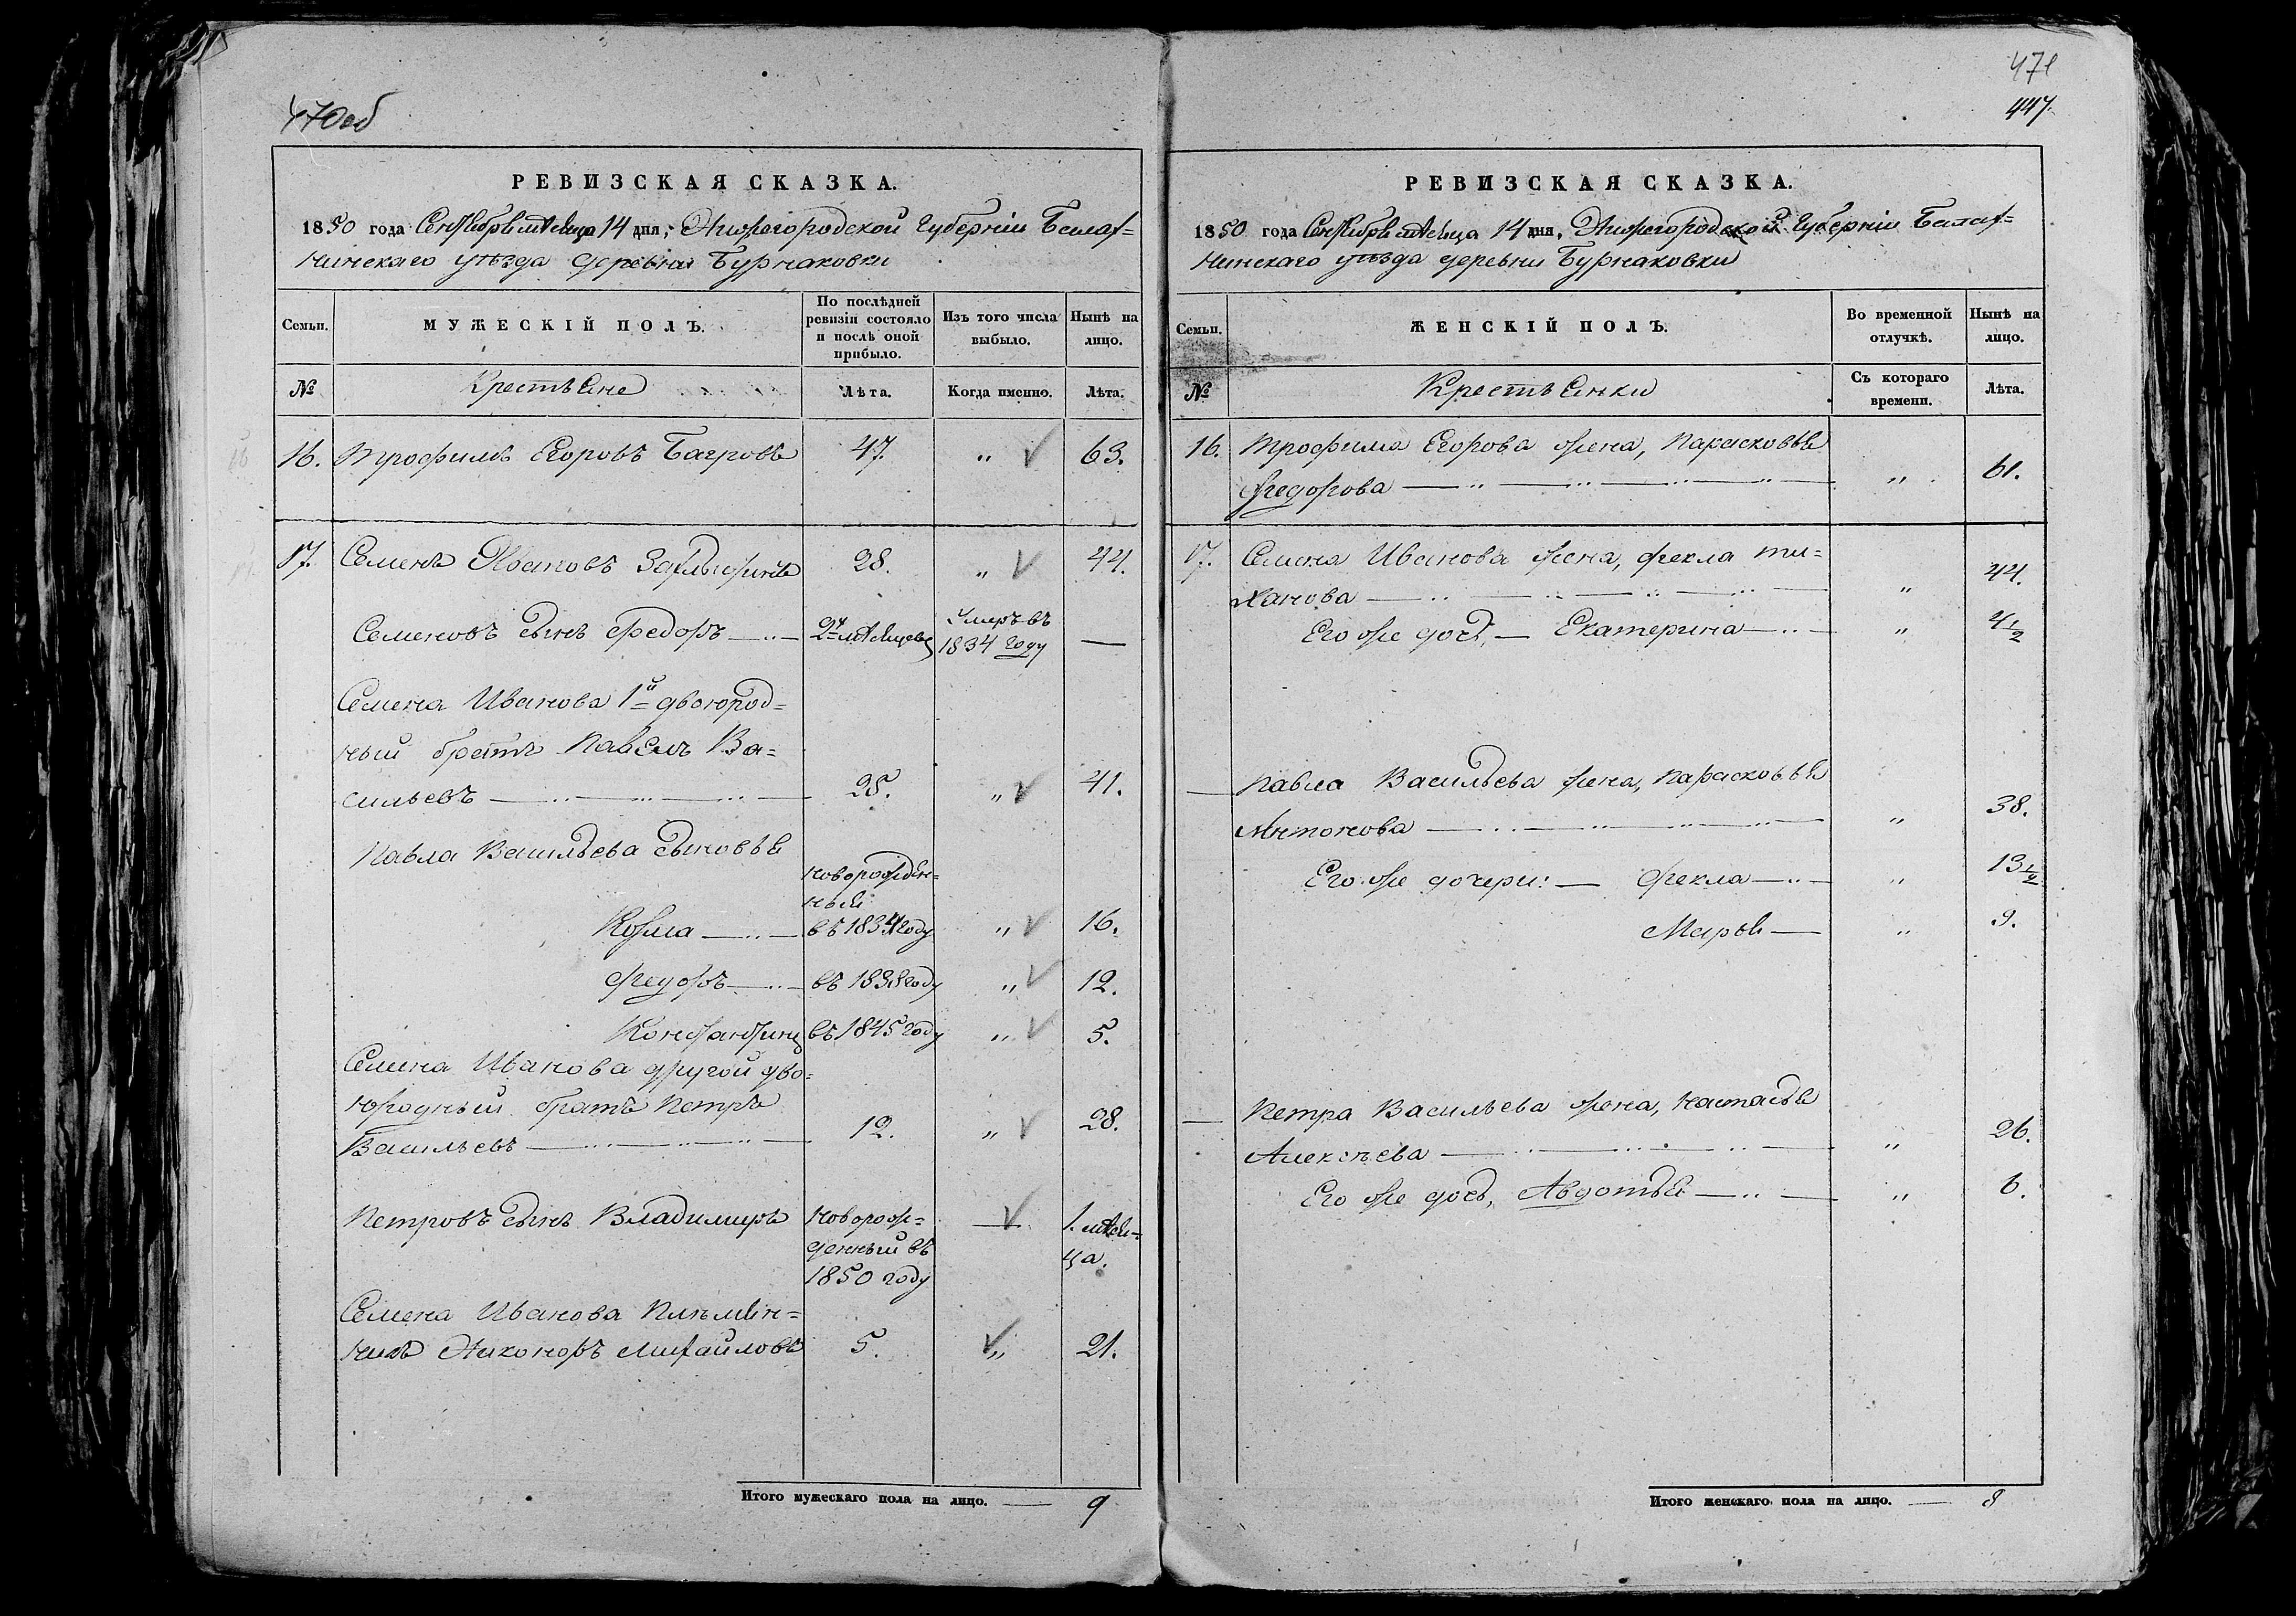 470об
РЕВИЗСКАЯ СКАЗКА.
1850 года Сентября мѣсяца 14 дня, Нижегородской Губерніи Балах=
нинскаго уѣзда деревни Бурнаковки
Семьи.
МУЖЕСКІЙ ПОЛЪ.
По послѣдней
ревизіи состояло
и послѣ оной
прибыло.
Изъ того числа
выбыло.
Нынѣ на
лицо.
№
Крестьяне
Лѣта.
Когда именно.
Лѣта.
16. Трофимъ Егоровъ Багровъ 47. „ 63.
17. Семенъ Ивановъ 28. „ 44.
Семеновъ сынъ Федоръ 2х мѣсяцевъ Умеръ въ
1834 году —
Семена Иванова 1й двоюрод=
ный братъ Павелъ Ва=
сильевъ 25. „ 41.
Павла Васильева сыновья
Новорожден=
ный
Козма въ 1834 году „ 16.
Федоръ въ 1838 году „ 12.
Константинъ въ 1845 году „ 5.
Семена Иванова другой дво=
юродный братъ Петръ
Васильевъ 12. „ 28.
Петровъ сынъ Владимиръ Новорож=
денный въ
1850 году — 1. мѣся=
ца.
Семена Иванова племян=
никъ Никоноръ Михайловъ 5. „ 21.
Итого мужескаго пола на лицо. — 9
471
447.
РЕВИЗСКАЯ СКАЗКА.
1850 года Сентября мѣсяца 14 дня, Нижегородской Губерніи Балах=
нинскаго уѣзда деревни Бурнаковки
Семьи.
ЖЕНСКІЙ ПОЛЪ.
Во временной
отлучкѣ.
Нынѣ на
лицо.
№
Крестьянки
Съ котораго
времени.
Лѣта.
16. Трофима Егорова жена, Парасковья
Федорова „ 61.
17. Семена Иванова жена, Фекла Ти=
ханова „ 44.
Его же дочь, — Екатерина „ 4½
— Павла Васильева жена, Парасковья
Антонова „ 38.
Его же дочери: — Фекла „ 13½
Марья „ 9.
— Петра Васильева жена, Настасья
Алексѣева „ 26.
Его же дочь, Авдотья „ 6.
Итого женскаго пола на лицо. — 8